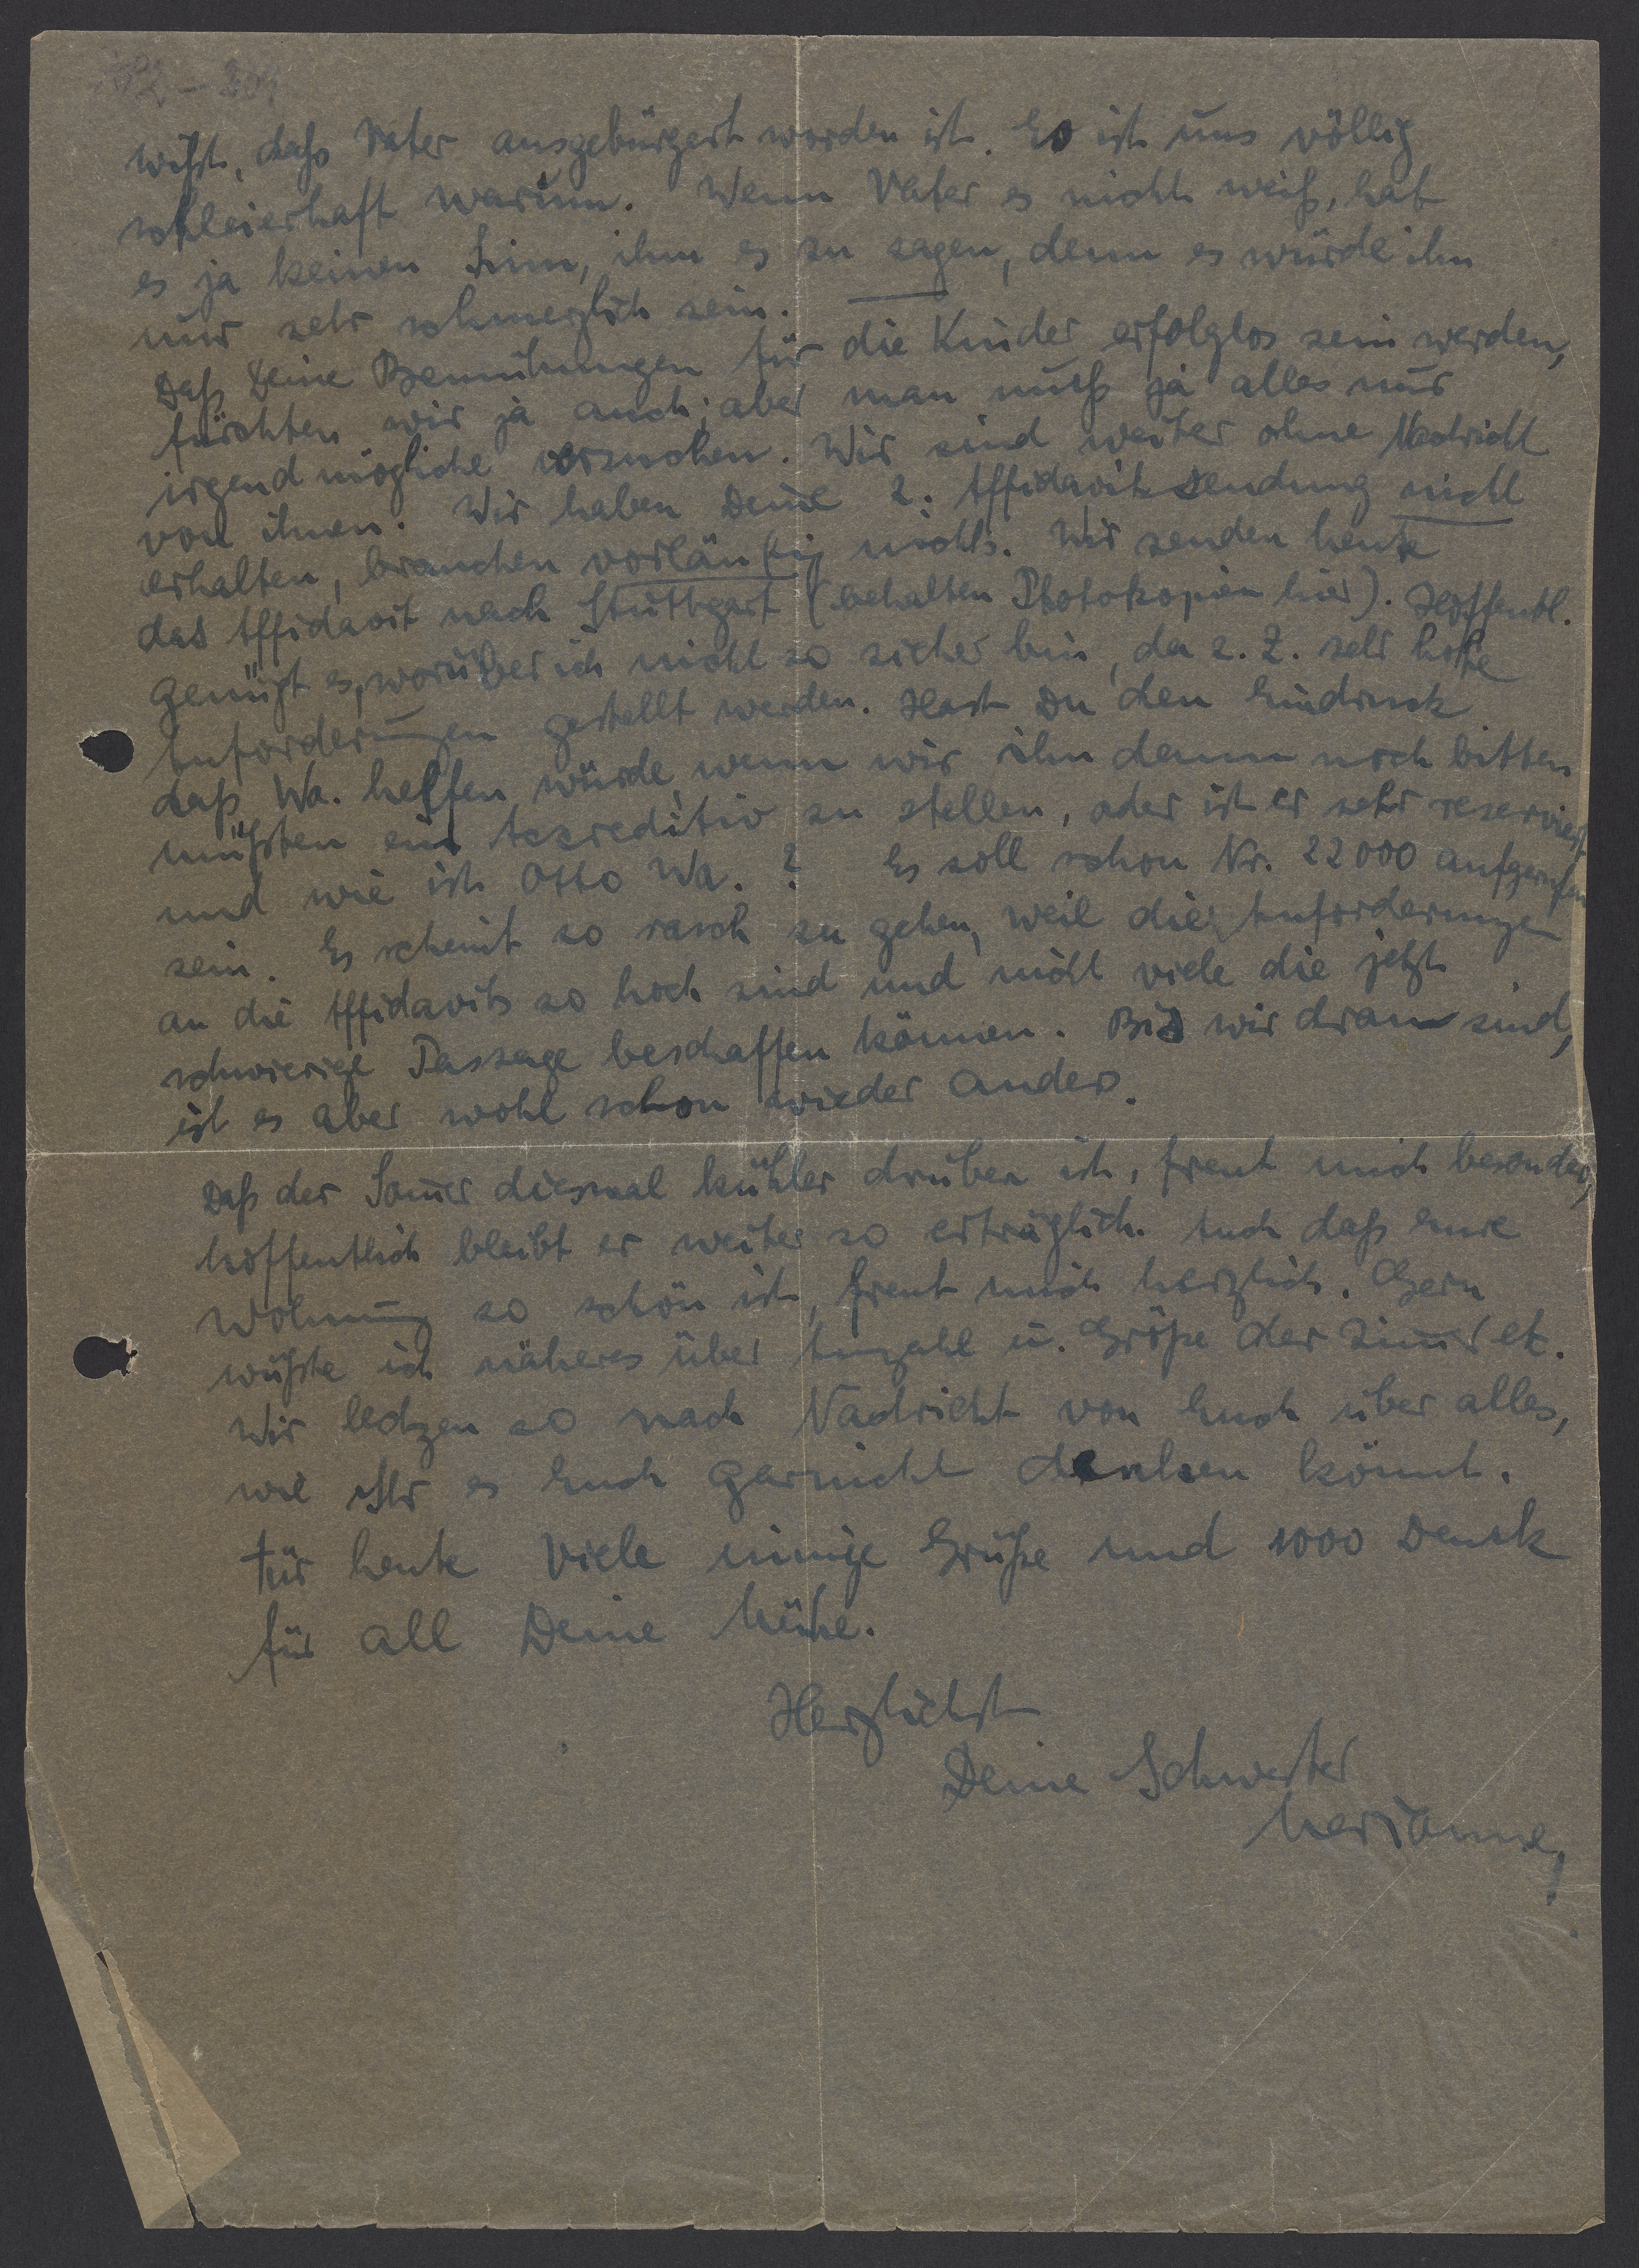 wißt, daß Vater ausgebürgert worden ist. Es ist uns völlig
schleierhaft warum. Wenn Vater es nicht weiß, hat
es ja keinen Sinn, ihm es zu sagen, denn es würde ihm
nur sehr schmerzlich sein.
Daß Deine Bemühungen für die Kinder erfolglos sein werden,
fürchten wir ja auch; aber man muß ja alles nur
irgend mögliche versuchen. Wir sind weiter ohne Nachricht
von ihnen. Wir haben Deine 2. Affidavit Sendung nicht
erhalten, brauchen vorläufig nichts. Wir senden heute
das Affidavit nach Stuttgart (behalten Photokopien hier). Hoffentl.
genügt es, worüber ich nicht so sicher bin, da z. Z. sehr hohe
Anforderungen gestellt werden. Hast Du den Eindruck
daß Wa. helfen würde, wenn wir ihn dann noch bitten
müßten ein Akkreditiv zu stellen, oder ist er sehr reserviert
und wie ist Otto Wa.? Es soll schon Nr. 22000 aufgerufen
sein. Es scheint so rasch zu gehen, weil die Anforderungen
an die Affidavits so hoch sind und nicht viele die jetzt
schwierige Passage beschaffen können. Bis wir dran sind,
ist es aber wohl schon wieder anders.
Daß der Som̅er diesmal kühler drüben ist, freut mich besonders,
hoffentlich bleibt er weiter so erträglich. Auch daß Eure
Wohnung so schön ist, freut mich herzlich. Gern
wüßte ich näheres über Anzahl u. Größe der Zim̅er etc.
Wir lechzen so nach Nachricht von Euch über alles,
wie Ihr es Euch garnicht denken könnt.
Für heute viele innige Grüße und 1000 Dank
für all Deine Mühe.
Herzlichst
Deine Schwester
Marianne,